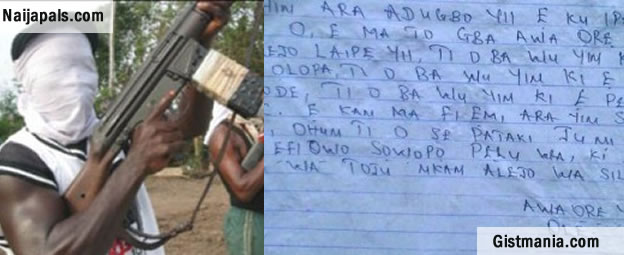 Naijapals.com
ARA ADUGBO YII E KU
O, E MA TO GBA AWA ORE
LEJO LAIPE YII, TI O BA WU YIN
OLOPA, TI O BA WU YIM KI E
ODE, TI O BA WU YIM KI E PE
E KAN MA FI EMI, ARA YIM S
OHUN TI O SE PATAKI JU NI
EFI OWO SOWOPO PELU WA, KI
WA TOJU NKAN ALEJO WA SIL
AWA ORE Y
Gistmania.com